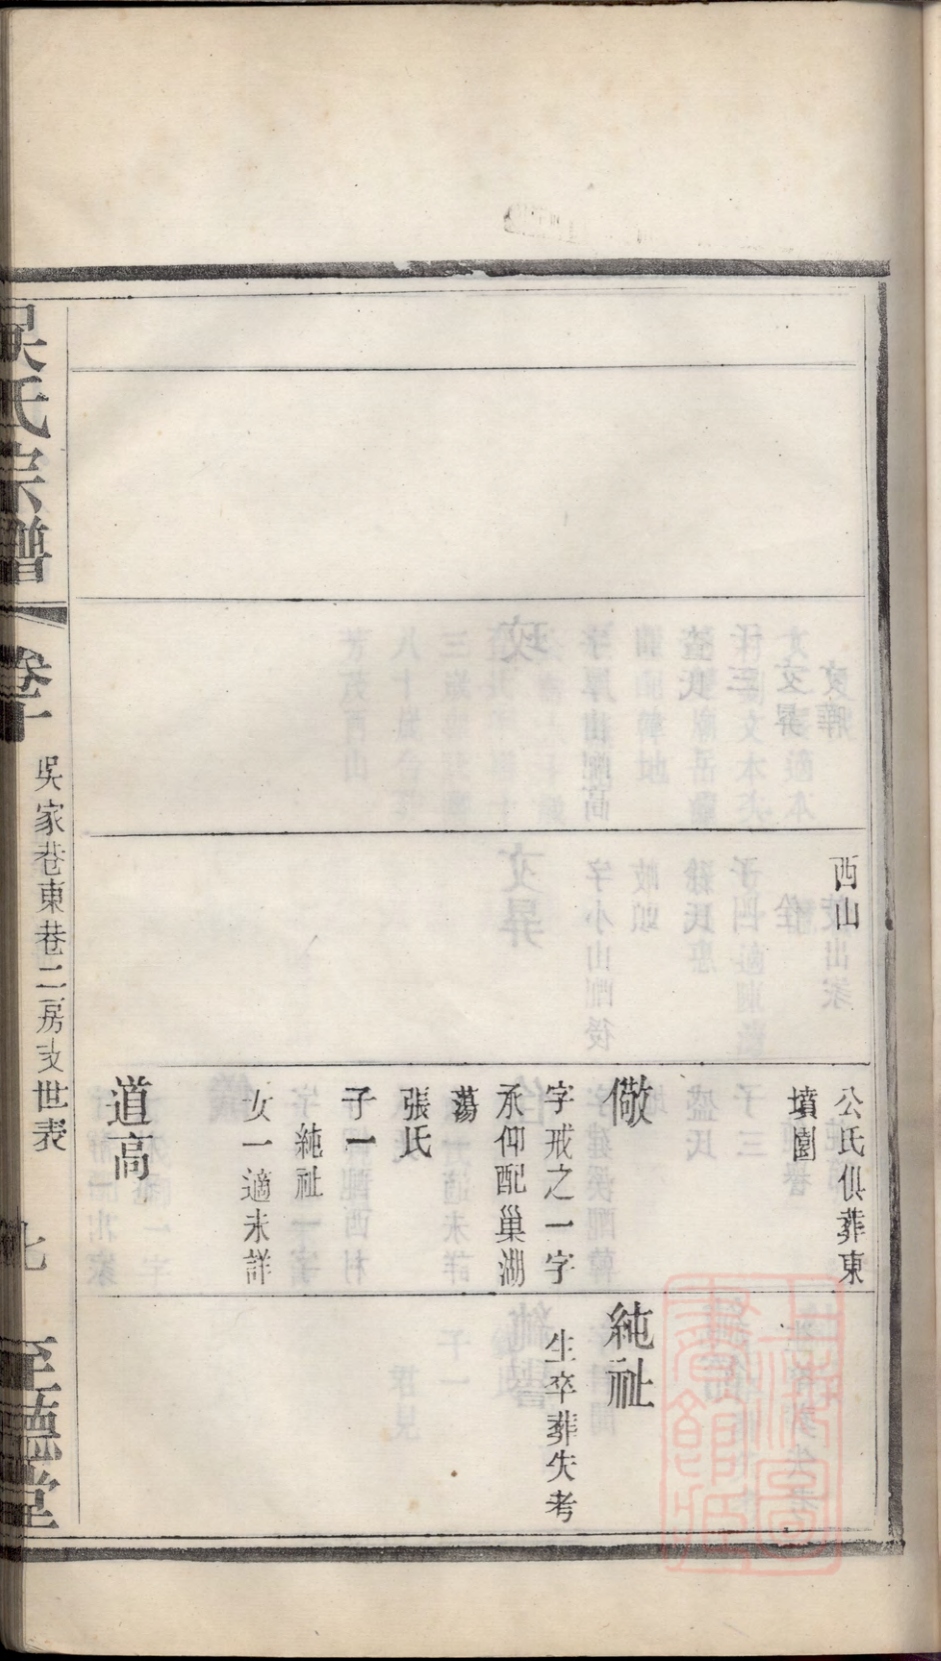 西山
公氏俱葬東
墳園
儆
字戒之一字
承仰配巢湖
蕩
張氏
子一
純祉
女一適未詳
道高
純祉
生卒葬失考
吳氏宗譜
卷十
吳家巷東巷二房支世表
七
至德堂